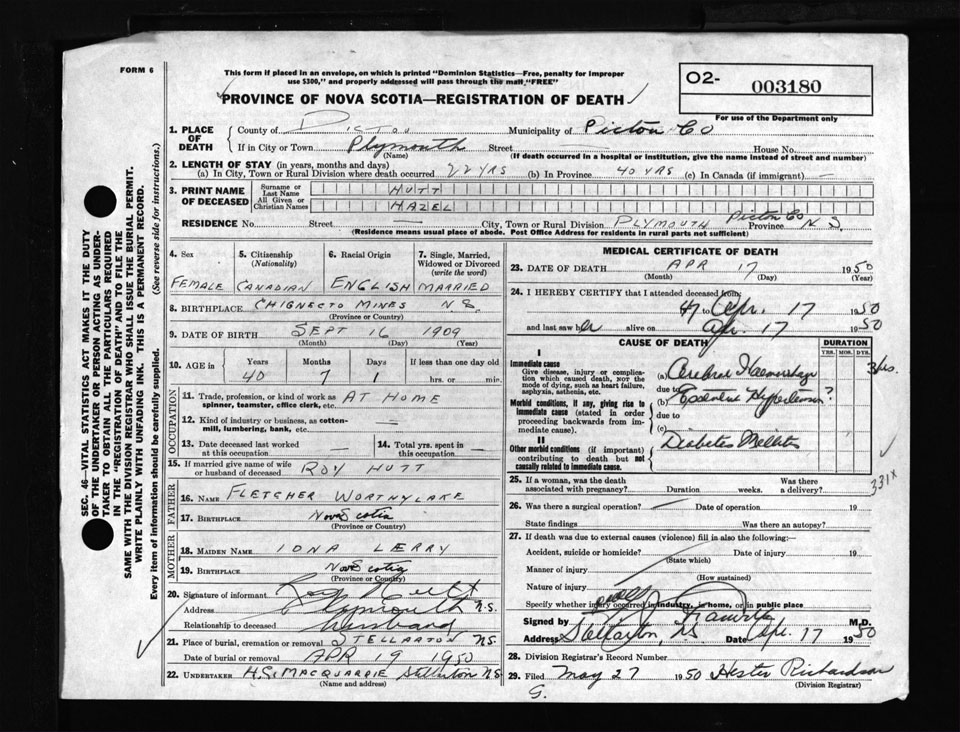 FORM 6
This form if placed in an envelope, on which is printed "Dominion Statistics—Free, penalty for improper
use $300," and properly addressed will pass through the mail "FREE"
O2- 003180
For use of the Department only
PROVINCE OF NOVA SCOTIA—REGISTRATION OF DEATH
1. PLACE OF DEATH
County of Pictou Municipality of Pictou Co
If in City or Town Plymouth Street — House No.
(Name) (If death occurred in a hospital or institution, give the name instead of street and number)
2. LENGTH OF STAY (in years, months and days)
(a) In City, Town or Rural Division where death occurred 22 YRS (b) In Province 40 YRS (c) In Canada (if immigrant) —
3. PRINT NAME OF DECEASED
Surname or Last Name HUTT
All Given or Christian Names HAZEL
RESIDENCE No. Street — City, Town or Rural Division PLYMOUTH Pictou Co Province N S.
(Residence means usual place of abode. Post Office Address for residents in rural parts not sufficient)
4. Sex 5. Citizenship (Nationality) 6. Racial Origin 7. Single, Married, Widowed or Divorced (write the word)
FEMALE CANADIAN ENGLISH MARRIED
8. BIRTHPLACE CHIGNECTO MINES N.S.
(Province or Country)
9. DATE OF BIRTH SEPT 16 1909
(Month) (Day) (Year)
10. AGE in Years Months Days If less than one day old
40 7 1 hrs. or min.
OCCUPATION
11. Trade, profession, or kind of work as spinner, teamster, office clerk, etc. AT HOME
12. Kind of industry or business, as cotton-mill, lumbering, bank, etc. —
13. Date deceased last worked at this occupation — 14. Total yrs. spent in this occupation —
15. If married give name of wife or husband of deceased ROY HUTT
FATHER
16. NAME FLETCHER WORTHYLAKE
17. BIRTHPLACE Nova Scotia
(Province or Country)
MOTHER
18. MAIDEN NAME IONA LERRY
19. BIRTHPLACE Nova Scotia
(Province or Country)
20. Signature of informant Roy Hutt
Address Plymouth N.S.
Relationship to deceased husband
21. Place of burial, cremation or removal STELLARTON N.S.
Date of burial or removal APR 19 1950
22. UNDERTAKER H.S. MACQUARRIE Stellarton N.S.
(Name and address)
MEDICAL CERTIFICATE OF DEATH
23. DATE OF DEATH APR 17 1950
(Month) (Day)
24. I HEREBY CERTIFY that I attended deceased from:
to Apr. 17 1950
and last saw her alive on Apr. 17 1950
CAUSE OF DEATH DURATION
YRS. MOS. DYS.
I
Immediate cause
Give disease, injury or complication which caused death, not the mode of dying, such as heart failure, asphyxia, asthenia, etc.
(a) Cerebral Haemorrhage 3 hrs.
due to
Morbid conditions, if any, giving rise to immediate cause (stated in order proceeding backwards from immediate cause).
(b) Essential Hypertension ?
due to
(c)
II
Other morbid conditions (if important) contributing to death but not causally related to immediate cause.
Diabetes Mellitus
331x
25. If a woman, was the death associated with pregnancy? Duration weeks. Was there a delivery?
26. Was there a surgical operation? — Date of operation 19
State findings Was there an autopsy?
27. If death was due to external causes (violence) fill in also the following:—
Accident, suicide or homicide? Date of injury 19
(State which)
Manner of injury
(How sustained)
Nature of injury
Specify whether injury occurred in industry, in home, or in public place
Signed by M.D.
Address Stellarton, NS Date Apr. 17 1950
28. Division Registrar's Record Number
29. Filed May 27 1950 Hester Richardson
(Division Registrar)
G.
SEC. 46—VITAL STATISTICS ACT MAKES IT THE DUTY
OF THE UNDERTAKER OR PERSON ACTING AS UNDER-
TAKER TO OBTAIN ALL THE PARTICULARS REQUIRED
IN THE "REGISTRATION OF DEATH" AND TO FILE THE
SAME WITH THE DIVISION REGISTRAR WHO SHALL ISSUE THE BURIAL PERMIT.
WRITE PLAINLY WITH UNFADING INK. THIS IS A PERMANENT RECORD.
Every item of information should be carefully supplied. (See reverse side for instructions.)